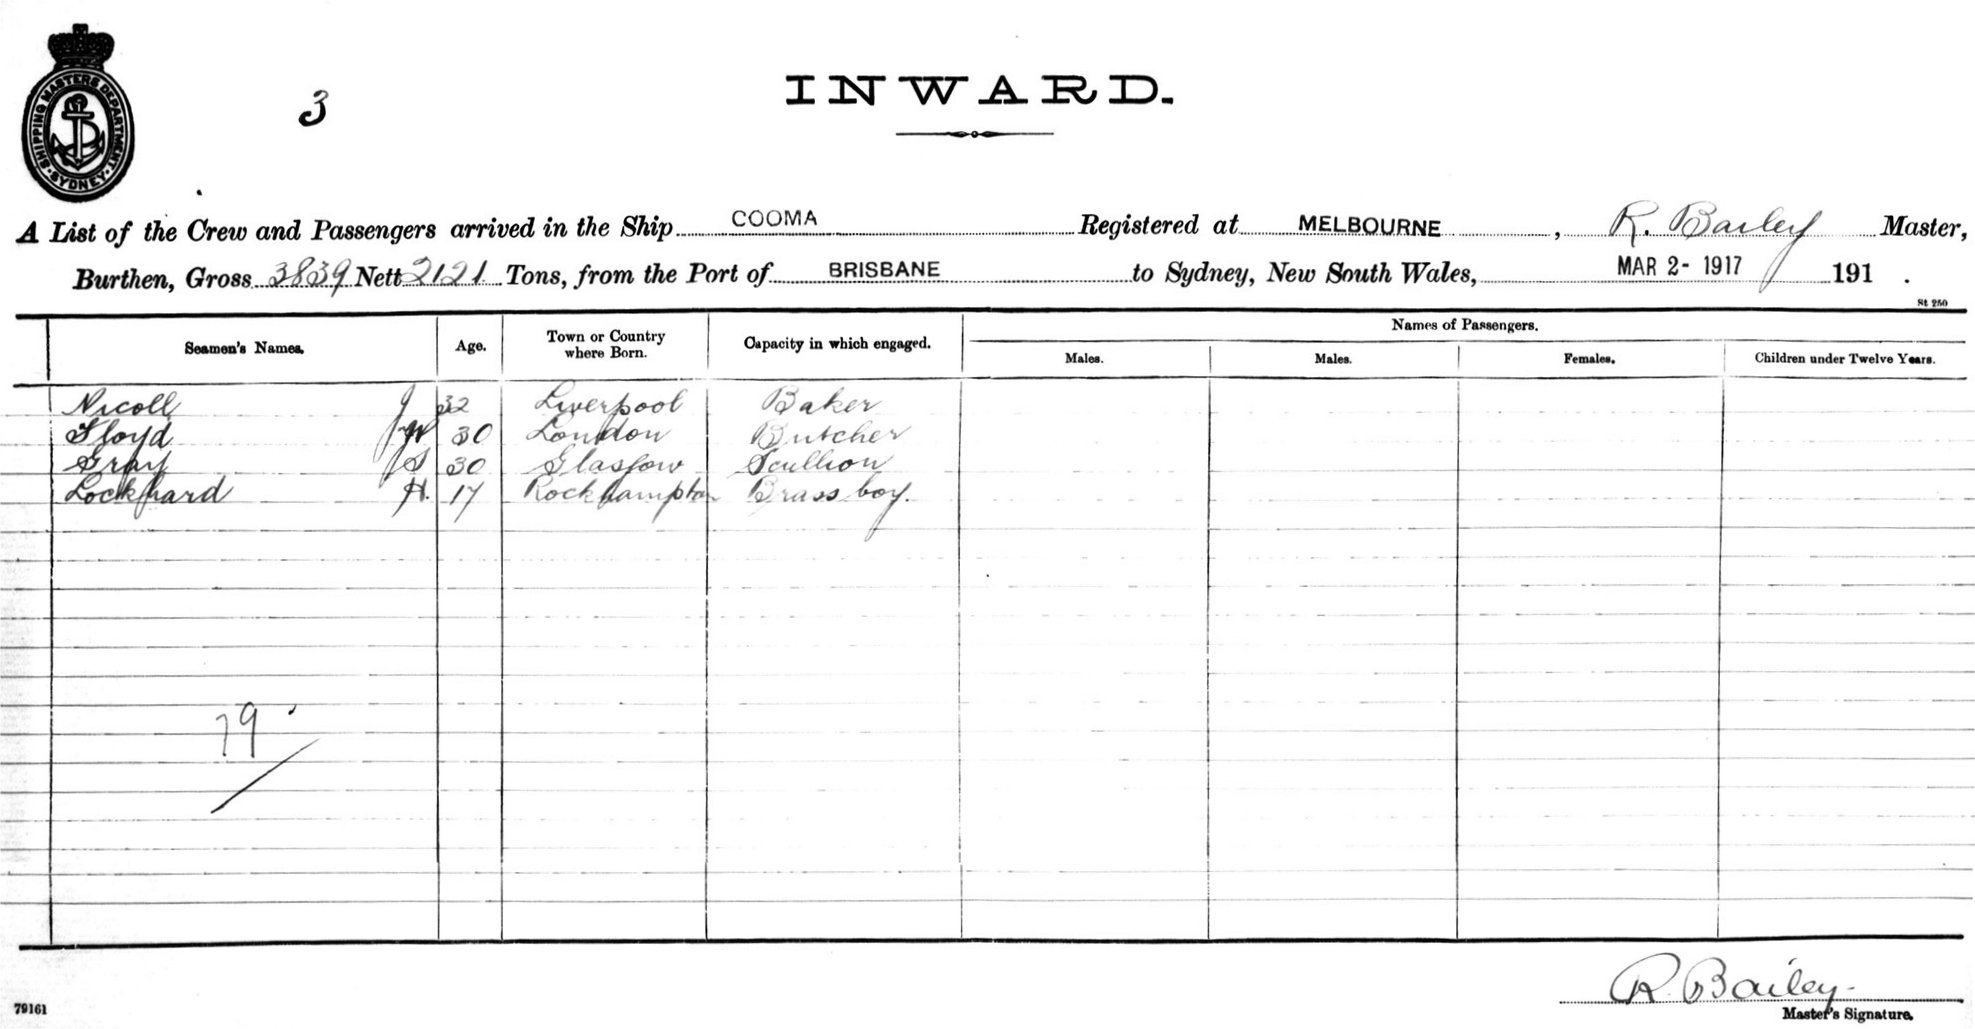 SHIPPING MASTERS DEPARTMENT · SYDNEY ·
3
INWARD.
A List of the Crew and Passengers arrived in the Ship COOMA Registered at MELBOURNE, R. Bailey Master,
Burthen, Gross 3839 Nett 2121 Tons, from the Port of BRISBANE to Sydney, New South Wales, MAR 2- 1917 191 .
St 250
Seamen's Names. Age. Town or Country where Born. Capacity in which engaged. Names of Passengers.
Males. Males. Females. Children under Twelve Years.
Nicoll J 32 Liverpool Baker
Floyd 30 London Butcher
Gray 30 Glasgow Scullion
Lockhard H. 17 Rockhampton Brass boy.
79
R. Bailey
79161 Master's Signature.